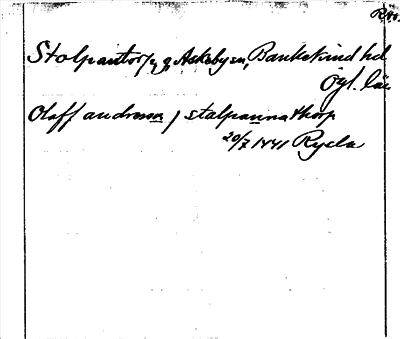 RAp.
Stolpantorp, g, Askeby sn, Bankekind hd
Ögl. län
Olaff andressa j stalpanna thorp
20/7 1441 Rycla